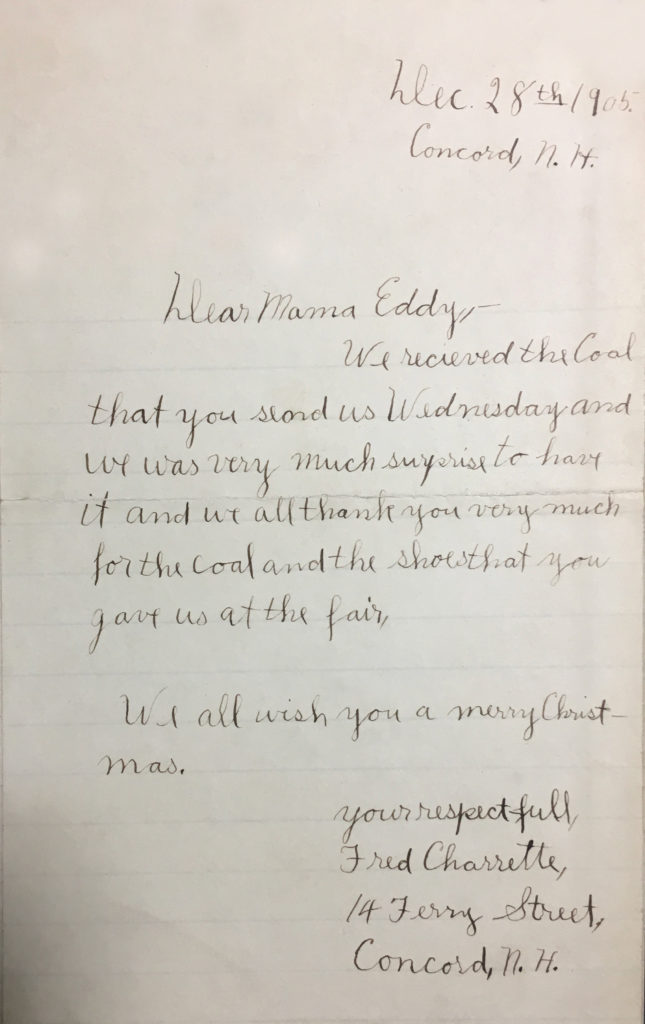 Dec. 28th 1905.
Concord, N. H.
Dear Mama Eddy,-
We recieved the Coal
that you send us Wednesday and
we was very much surprise to have
it and we all thank you very much
for the coal and the shoes that you
gave us at the fair,
We all wish you a merry Christ-
mas.
your respectfull,
Fred Charrette,
14 Ferry Street,
Concord, N. H.